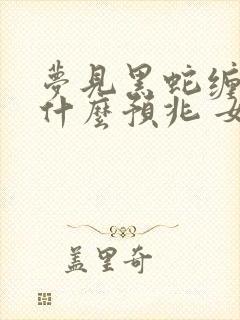 夢見黑蛇缠
什麼預兆 女
盖里奇